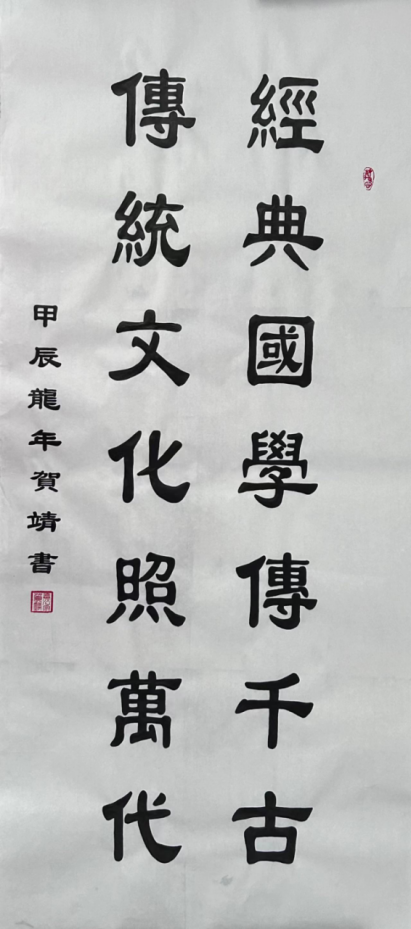 經典國學傳千古
傳統文化照萬代
甲辰龍年賀靖書